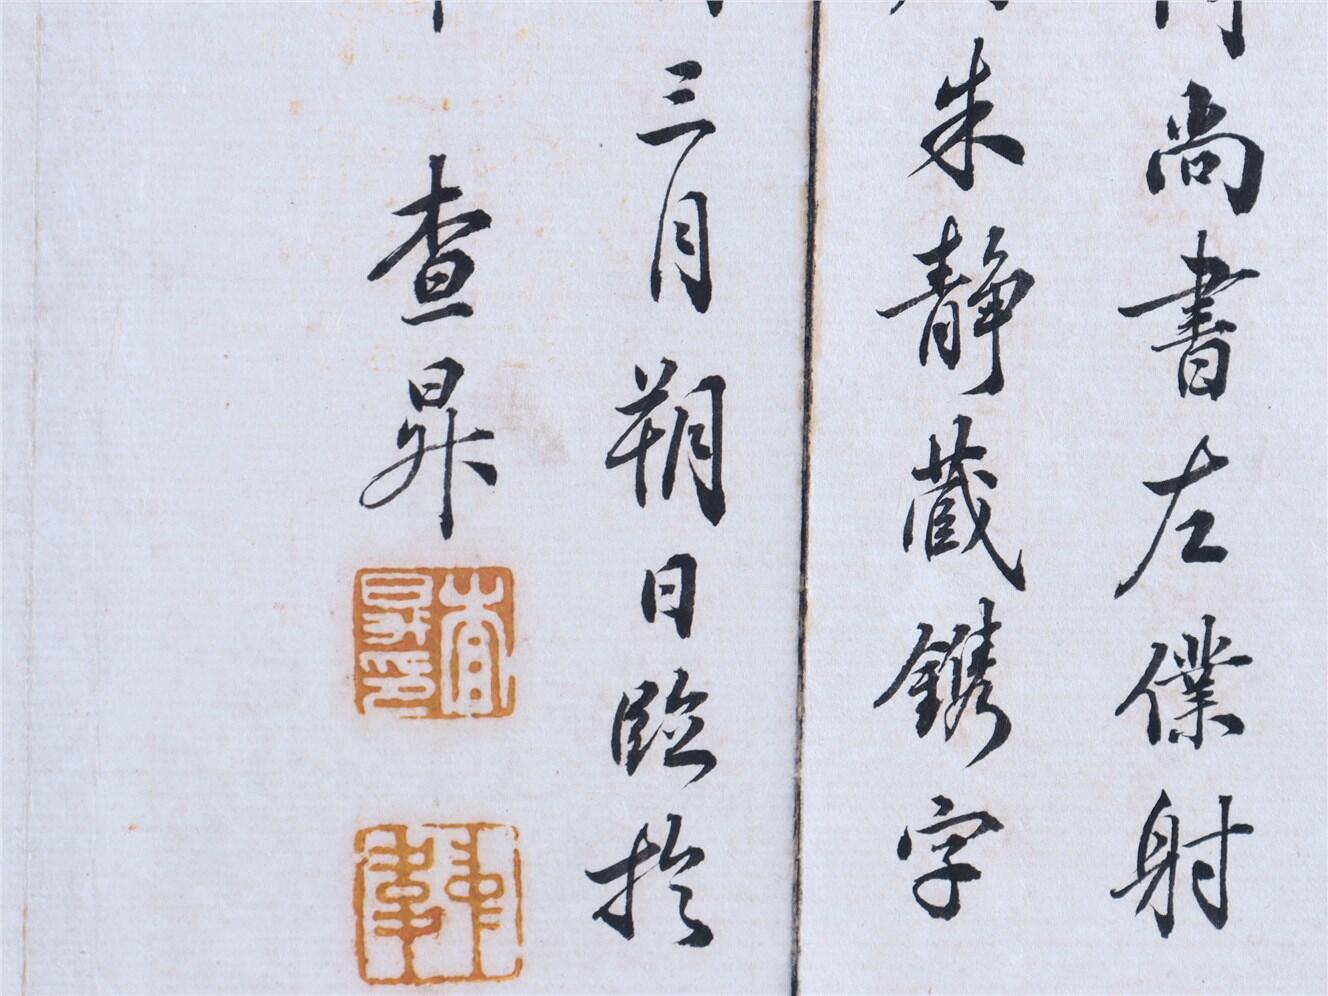 尚書左僕射
朱静藏鐫字
三月朔日臨於
查昇
查昇印